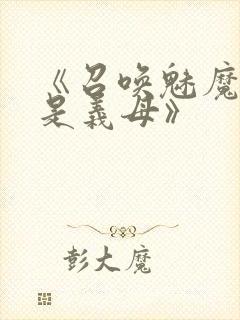 《召唤魅魔
是义母》
彭大魔